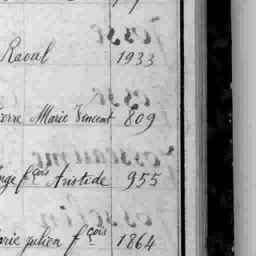 Raoul 1933
erre Marie Vincent 809
nge fçois Aristide 955
rie julien fçois 1864